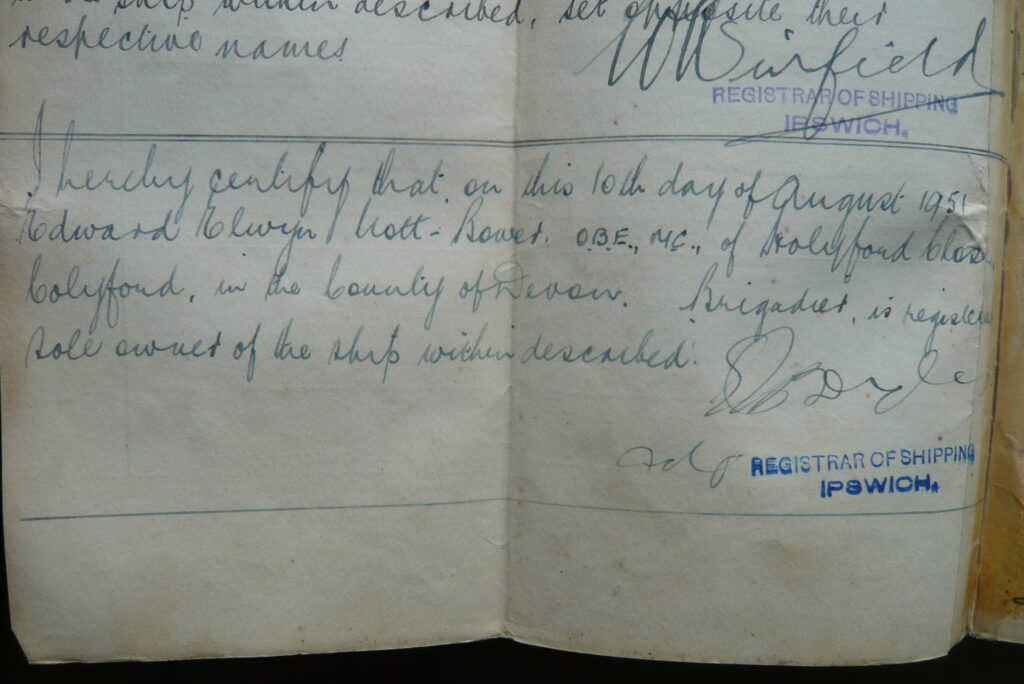 ship within described, set opposite their
respective names
W Winfield
REGISTRAR OF SHIPPING
IPSWICH.
I hereby certify that on this 10th day of August 1951
Edward Elwyn Nott-Bower. O.B.E., M.C., of Holyford Close,
Colyford, in the County of Devon. Brigadier, is registered
sole owner of the ship within described.
REGISTRAR OF SHIPPING
IPSWICH.